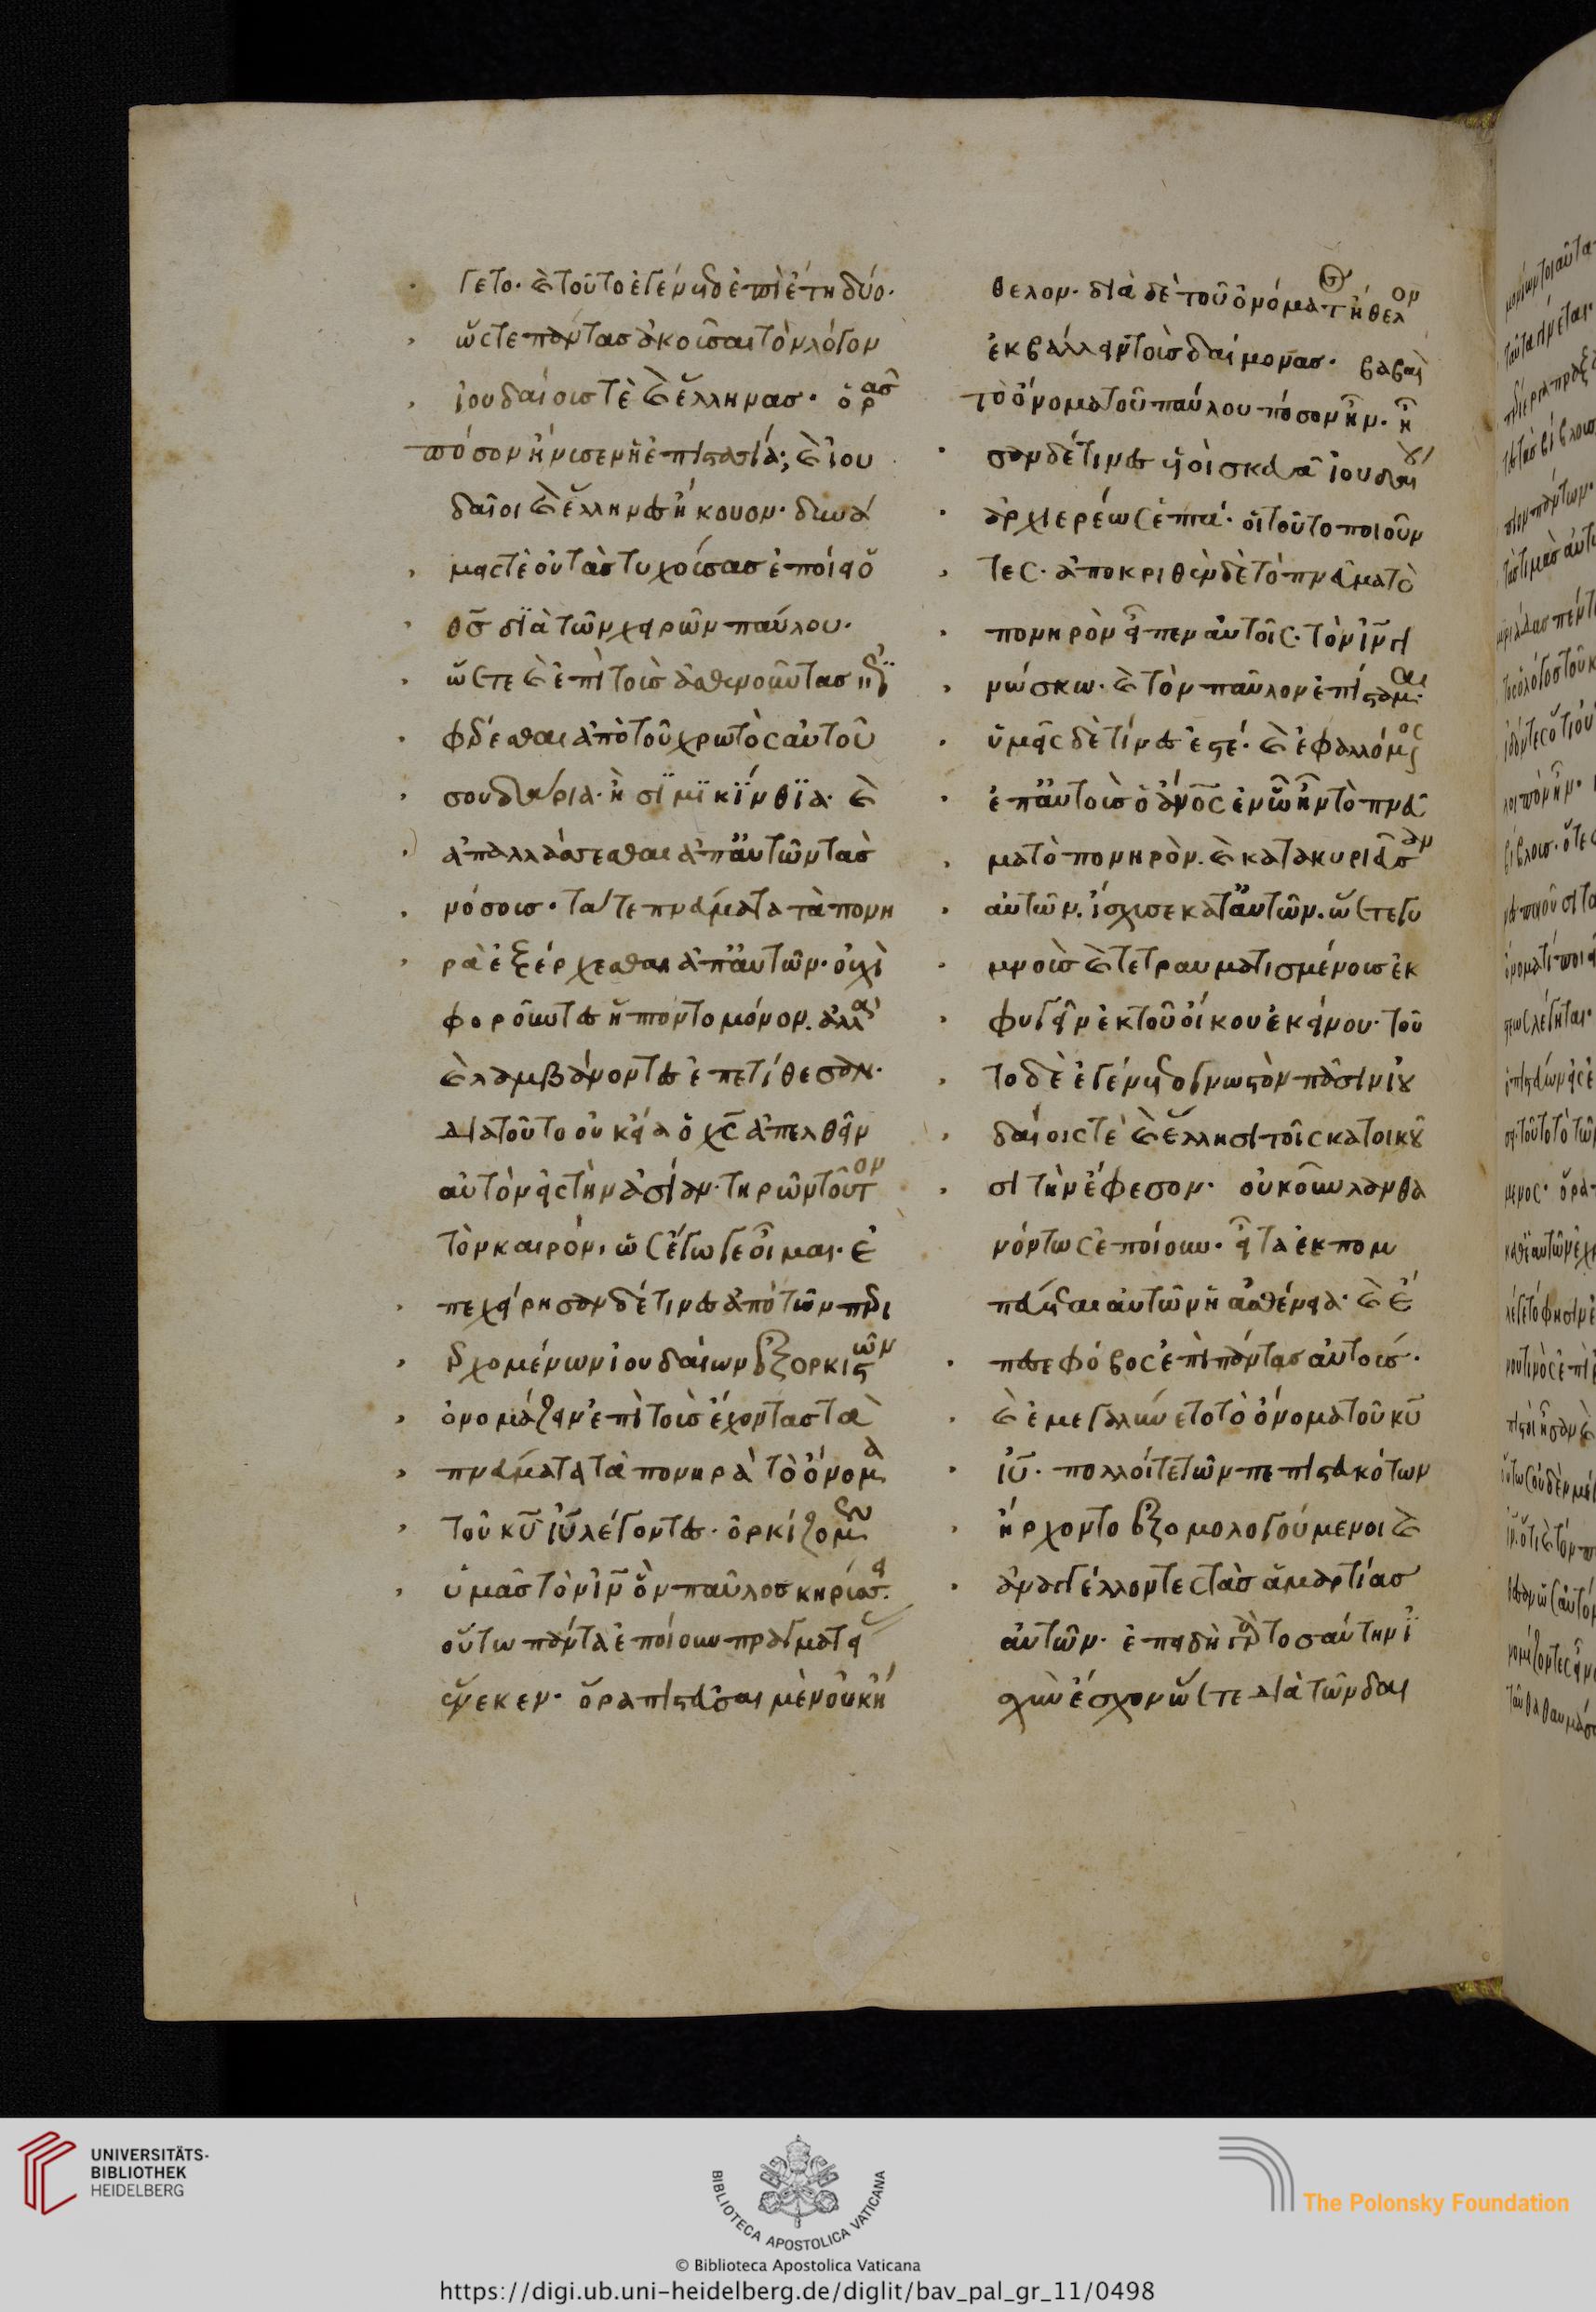 γετο· καὶ τοῦτο ἐγένετο ἐπὶ ἔτη δύο·
ὥστε πάντας ἀκοῦσαι τὸν λόγον
ἰουδαίους τὲ καὶ ἕλληνας· ὁρᾶς
πόσον ἤνυσεν ἡ ἐπιστασία; καὶ ἰου
δαῖοι καὶ ἕλληνες ἤκουον· δυνά
μεις τὲ οὐ τὰς τυχούσας ἐποίει ὁ
θς διὰ τῶν χειρῶν παύλου·
ὥστε καὶ ἐπὶ τοὺς ἀσθενοῦντας
φέρεσθαι ἀπὸ τοῦ χρωτὸς αὐτοῦ
σουδάρια· ἢ σϊμϊκΐνθϊα· καὶ
ἀπαλλάσσεσθαι ἀπ αὐτῶν τὰς
νόσους· τά τε πνάματα τὰ πονη
ρὰ ἐξέρχεσθαι ἀπ αὐτῶν· οὐχὶ
φοροῦντες ἥπτοντο μόνον· ἀλλὰ
καὶ λαμβάνοντες ἐπετίθεσαν·
διὰ τοῦτο οὐκ εἴα ὁ χς ἀπελθεῖν
αὐτὸν εἰς τὴν ἀσίαν· τηρῶν τοῦτον
τὸν καιρόν· ὡς ἔγωγε οἶμαι· ἐ
πεχείρησαν δέ τινες ἀπὸ τῶν περι
ερχομένων ἰουδαίων ἐξορκιστῶν
ὀνομάζειν ἐπὶ τοὺς ἔχοντας τὰ
πνάματα τὰ πονηρὰ τὸ ὄνομα
τοῦ κυ ἰυ λέγοντες· ὁρκίζομεν
ὑμᾶς τὸν ἰν ὃν παῦλος κηρύσσει·
οὕτω πάντα ἐποίουν πράγματα
ἕνεκεν· ὅρα πιστεῦσαι μὲν οὐκ ἤ
θελον· διὰ δὲ τοῦ ὀνόματος ἤθελον
ἐκβάλλειν τοὺς δαίμονας· βαβαὶ
τὸ ὄνομα τοῦ παύλου πόσον ἦν· ἦ
σαν δέ τινες υἱοὶ σκευᾶ ἰουδαίου
ἀρχιερέως ἑπτά· οἱ τοῦτο ποιοῦν
τες· ἀποκριθὲν δὲ τὸ πνεῦμα τὸ
πονηρὸν εἶπεν αὐτοῖς· τὸν ἰν γι
νώσκω· καὶ τὸν παῦλον ἐπίσταμαι·
ὑμεῖς δὲ τίνες ἐστέ· καὶ ἐφαλλόμενος
ἐπ αὐτοὺς ὁ ἀνος ἐν ὧ ἦν τὸ πνεῦ
μα τὸ πονηρὸν· καὶ κατακυριεῦσαν
αὐτῶν· ἴσχυσε κατ αὐτῶν· ὥστε γυ
μνοὺς καὶ τετραυματισμένους ἐκ
φυγεῖν ἐκ τοῦ οἴκου ἐκείνου· τοῦ
το δὲ ἐγένετο γνωστὸν πᾶσιν ἰου
δαίοις τὲ καὶ ἕλλησι τοῖς κατοικοῦ
σι τὴν ἔφεσον· οὐκοῦν λανθα
νόντως ἐποίουν· εἶτα ἐκπομ
πεύεται αὐτῶν ἡ ἀσθένεια· καὶ ἐ
πεσε φόβος ἐπὶ πάντας αὐτούς·
καὶ ἐμεγαλύνετο τὸ ὄνομα τοῦ κυ
ἰυ· πολλοί τε τῶν πεπιστευκότων
ἤρχοντο ἐξομολογούμενοι καὶ
ἀναγγέλλοντες τὰς ἁμαρτίας
αὐτῶν· ἐπειδὴ γὰρ τοσαύτην ἰ
σχὺν ἔσχον ὥστε διὰ τῶν δαι
UNIVERSITÄTS-
BIBLIOTHEK
HEIDELBERG
BIBLIOTECA APOSTOLICA VATICANA
© Biblioteca Apostolica Vaticana
The Polonsky Foundation
https://digi.ub.uni-heidelberg.de/diglit/bav_pal_gr_11/0498